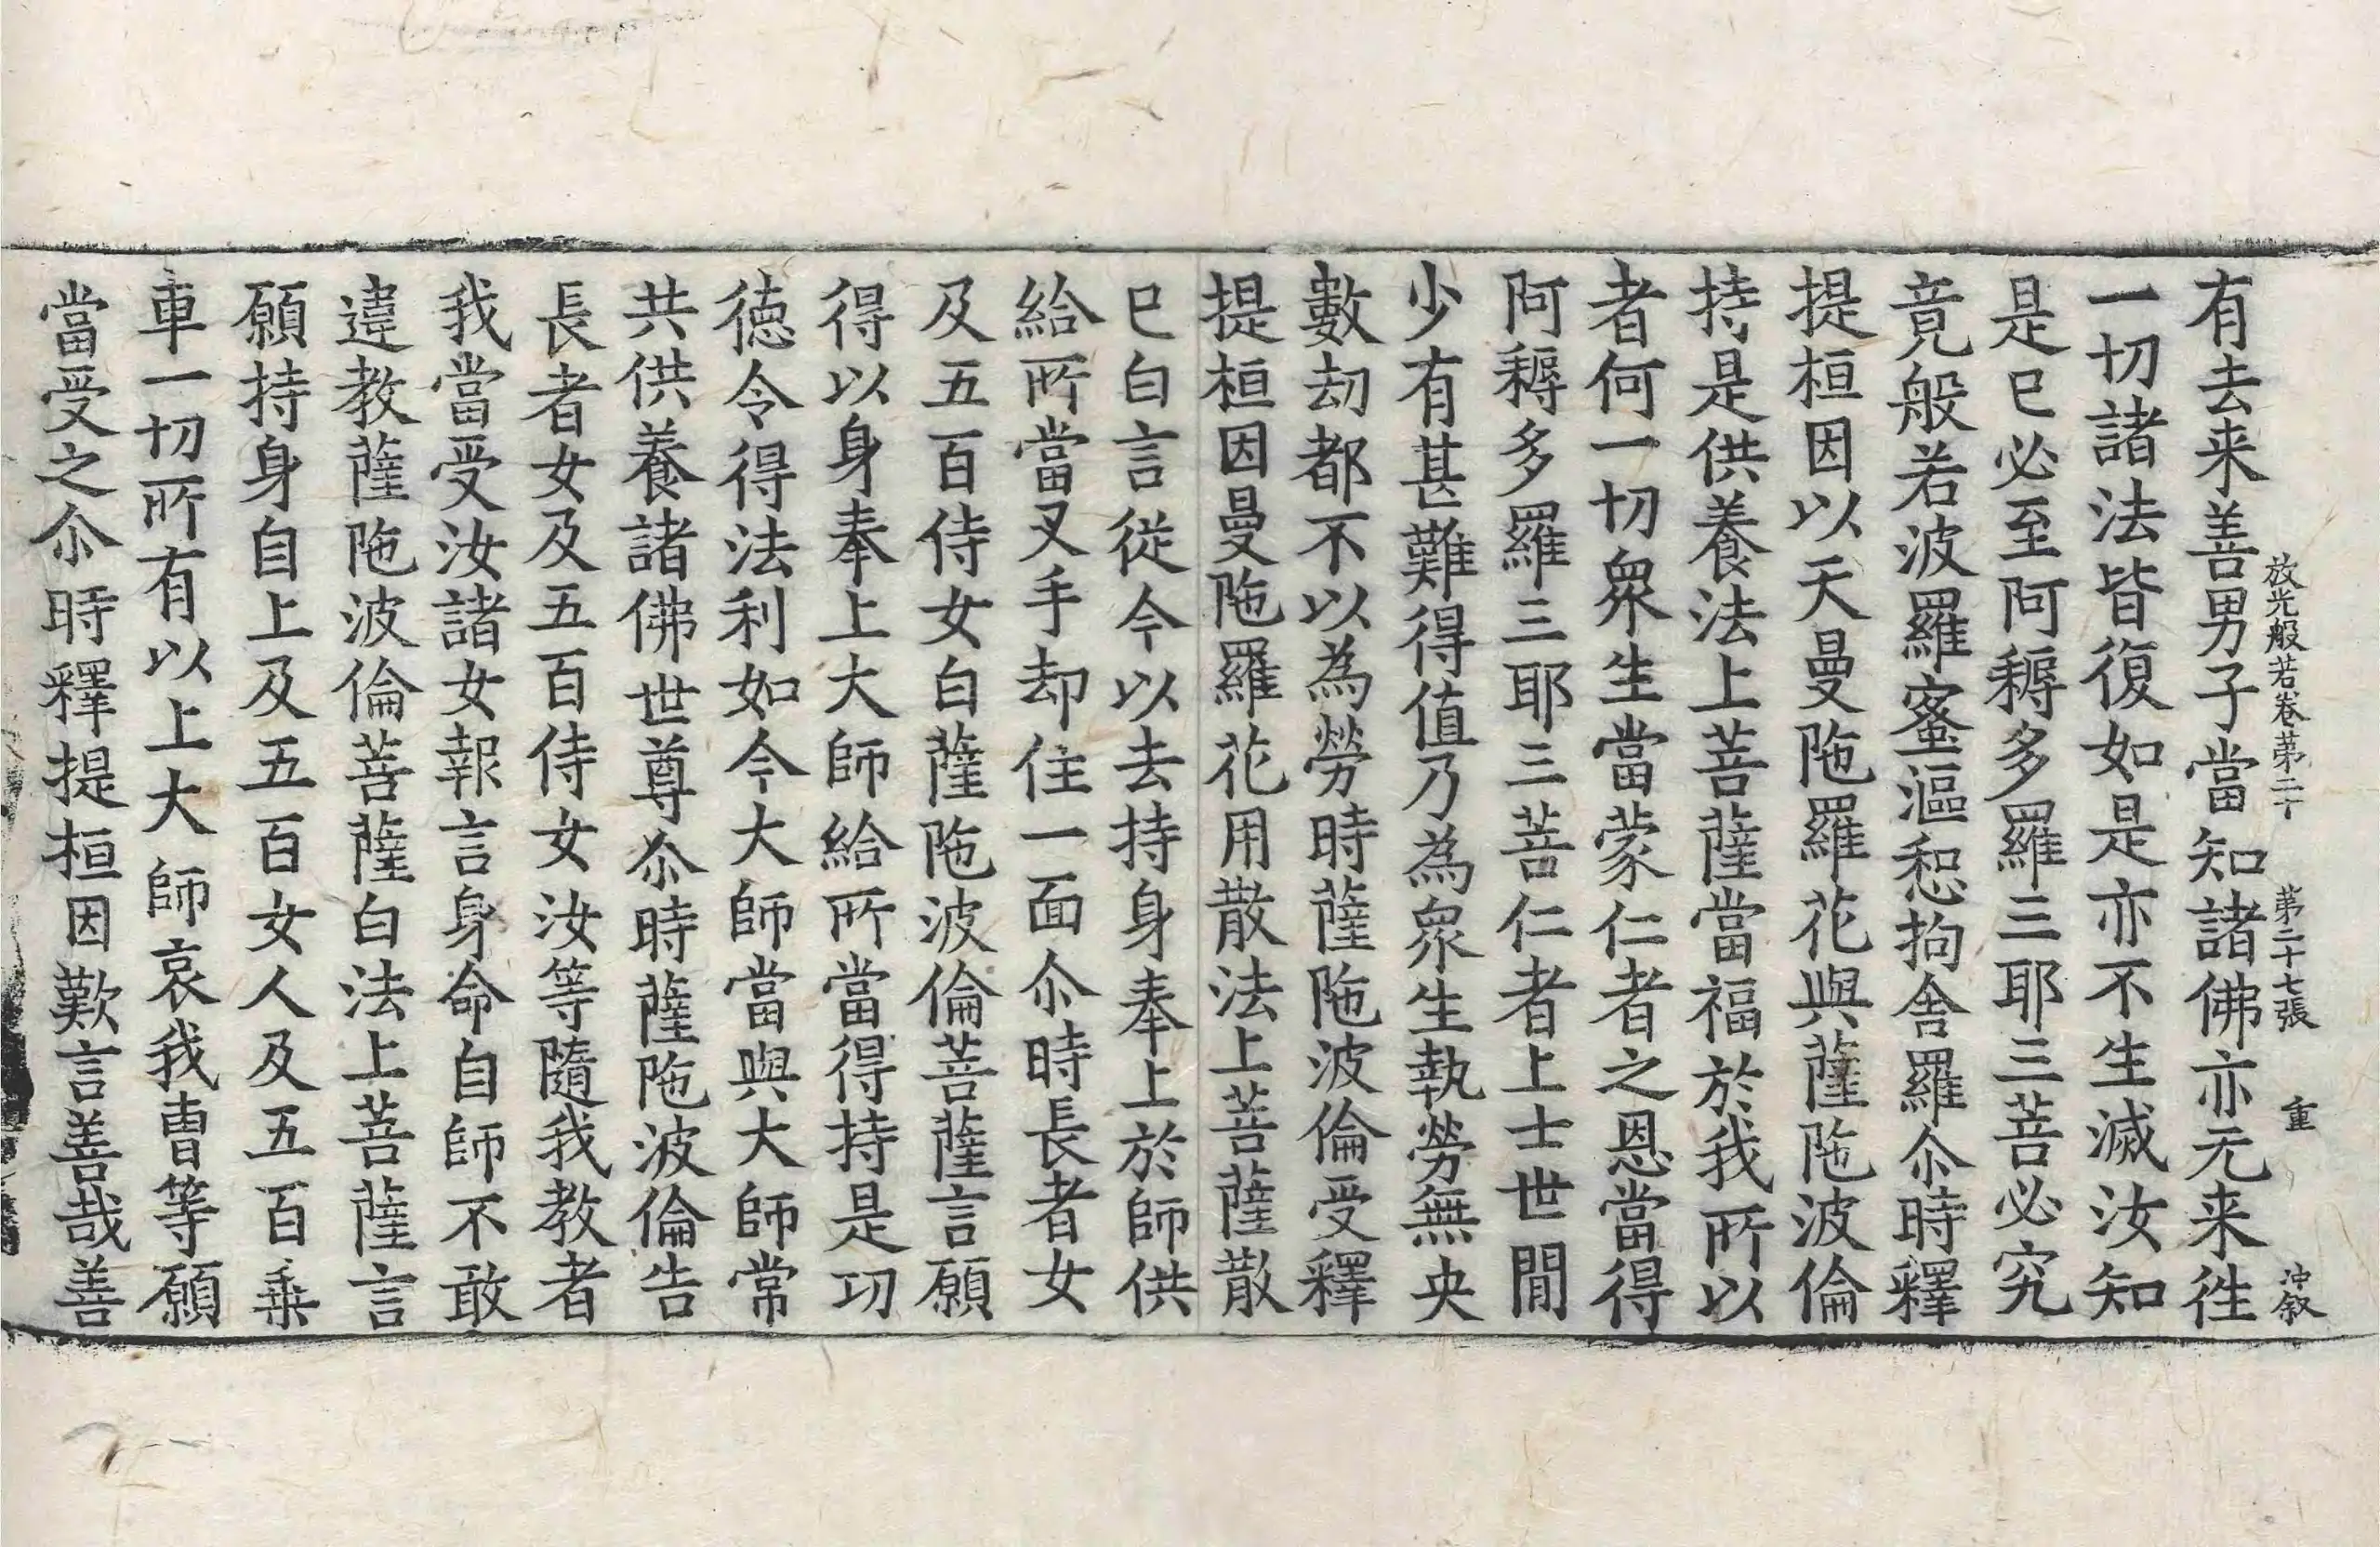 放光般若卷苐二十　苐二十七張　重　冲叙
有去来善男子當知諸佛亦无来徃
一切諸法皆復如是亦不生滅汝知
是已必至阿耨多羅三耶三菩必究
竟般若波羅蜜漚惒拘舍羅尒時釋
提桓因以天曼陁羅花與薩陁波倫
持是供養法上菩薩當福於我所以
者何一切衆生當蒙仁者之恩當得
阿耨多羅三耶三菩仁者上士世間
少有甚難得值乃為衆生執勞無央
數劫都不以為勞時薩陁波倫受釋
提桓因曼陁羅花用散法上菩薩散
已白言從今以去持身奉上於師供
給所當叉手却住一面尒時長者女
及五百侍女白薩陁波倫菩薩言願
得以身奉上大師給所當得持是功
徳令得法利如今大師當與大師常
共供養諸佛世尊尒時薩陁波倫告
長者女及五百侍女汝等隨我教者
我當受汝諸女報言身命自師不敢
違教薩陁波倫菩薩白法上菩薩言
願持身自上及五百女人及五百乗
車一切所有以上大師哀我曹等願
當受之尒時釋提桓因歎言善哉善